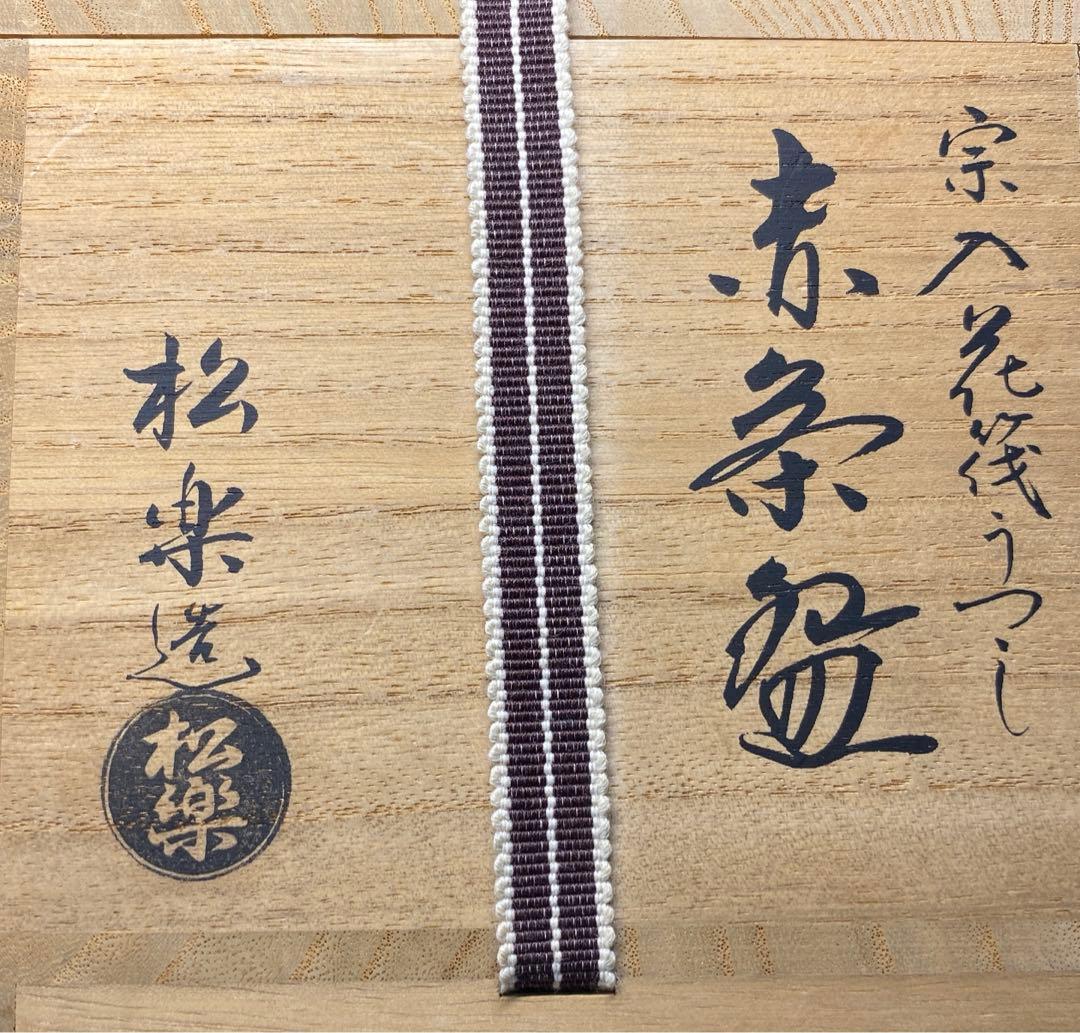 宗入花筏うつし
赤茶盌
松楽造
松樂